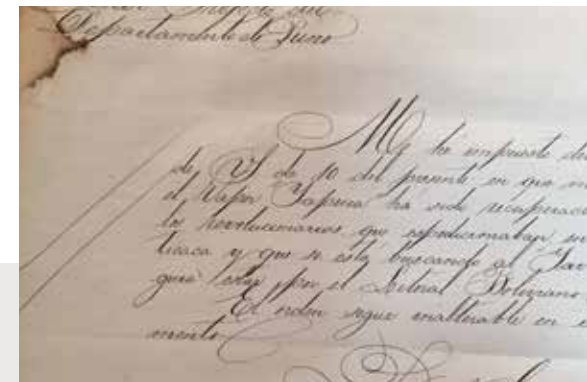 Departamento de Puno
Me he impuesto
de US de 10 del presente, en que
el Vapor Yapura ha sido recuperado
los revolucionarios que espedicionaban
ticaca y que se está buscando al
por el Litoral Boliviano
El orden sigue inalterable en